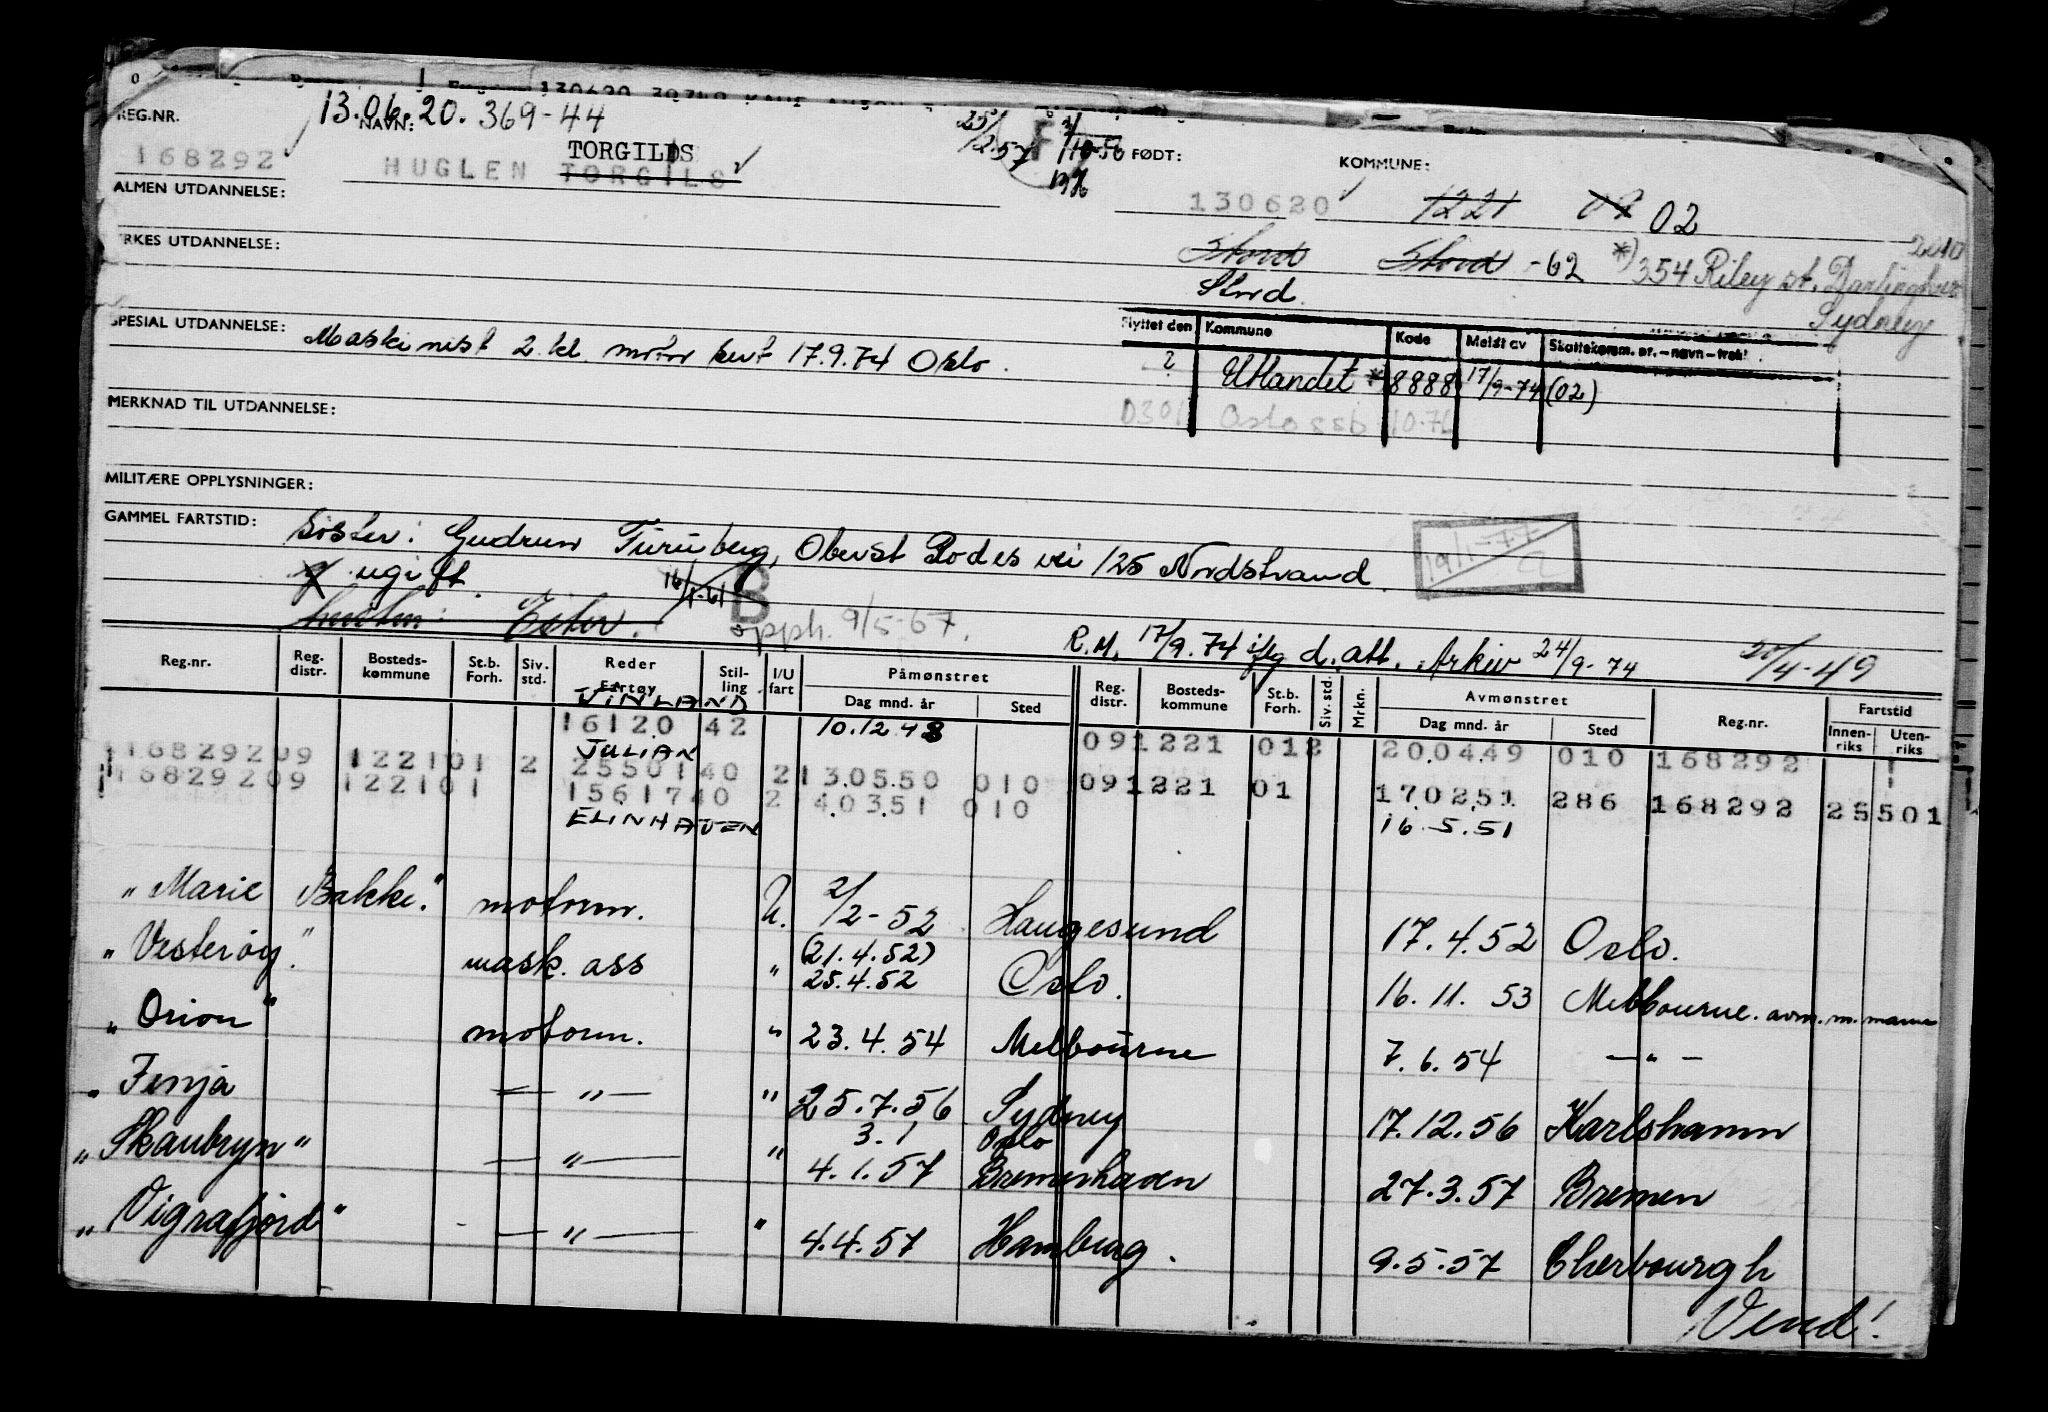 REG.NR.
13.06.20. 369-44
NAVN:
25/2 57
1/10-56
FØDT:
KOMMUNE:
168292
HUGLEN TORGILS
TORGILDS
130620
1221 09 02
ALMEN UTDANNELSE:
RKES UTDANNELSE:
Stord Stord -62 *) 354 Riley st. Darlinghur 2010
Stord. Sydney
SPESIAL UTDANNELSE: Maskinist 2 kl motor sert 17.9.74 Oslo.
Flyttet den Kommune Kode Meldt av Skattekomm. nr. – navn – trekt
? Utlandet * 8888 17/9-74 (02)
0301 Oslo ssb 10.76
MERKNAD TIL UTDANNELSE:
MILITÆRE OPPLYSNINGER:
GAMMEL FARTSTID: Søster: Gudrun Turuberg, Oberst Rodes vei 125 Nordstrand.
19/1-77
ugift. 16/1-61 B
Ester. opph. 9/5-67.
R.M. 17/9.74 iflg d. att. Arkiv 24/9-74 20/4-49
Reg.nr. Reg. distr. Bosteds- kommune St.b. Forh. Siv. std. Reder Fartøy Stil- ling I/U fart Påmønstret Dag mnd. år Sted Reg. distr. Bosteds- kommune St.b. Forh. Siv. std. Mrkn. Avmønstret Dag mnd. år Sted Reg.nr. Fartstid Innen- riks Uten- riks
VINLAND
16120 42 10.12.48 091221 012 200449 010 168292
JULIAN
16829209 122101 2 25501 40 2 130550 010 091221 01 170251 286 168292 25501
16829209 122101 15617 40 2 40351 010 16.5.51
ELINHAVEN
"Marie Bakke." motorm. U. 2/2-52 Haugesund 17.4.52 Oslo.
"Vesterøy." mask. ass " (21.4.52) 25.4.52 Oslo. 16.11.53 Melbourne. avm. m. mann
"Orion" motorm. " 23.4.54 Melbourne 7.6.54 — " —
" Fenja — " — " 25.7.56 Sydney 17.12.56 Karlshamn
"Skaubryn" — " — " 3.1 Oslo
4.1.57 Bremerhaven 27.3.57 Bremen
"Vigrafjord" — " — " 4.4.57 Hamburg. 9.5.57 Cherbourgh
Vend!